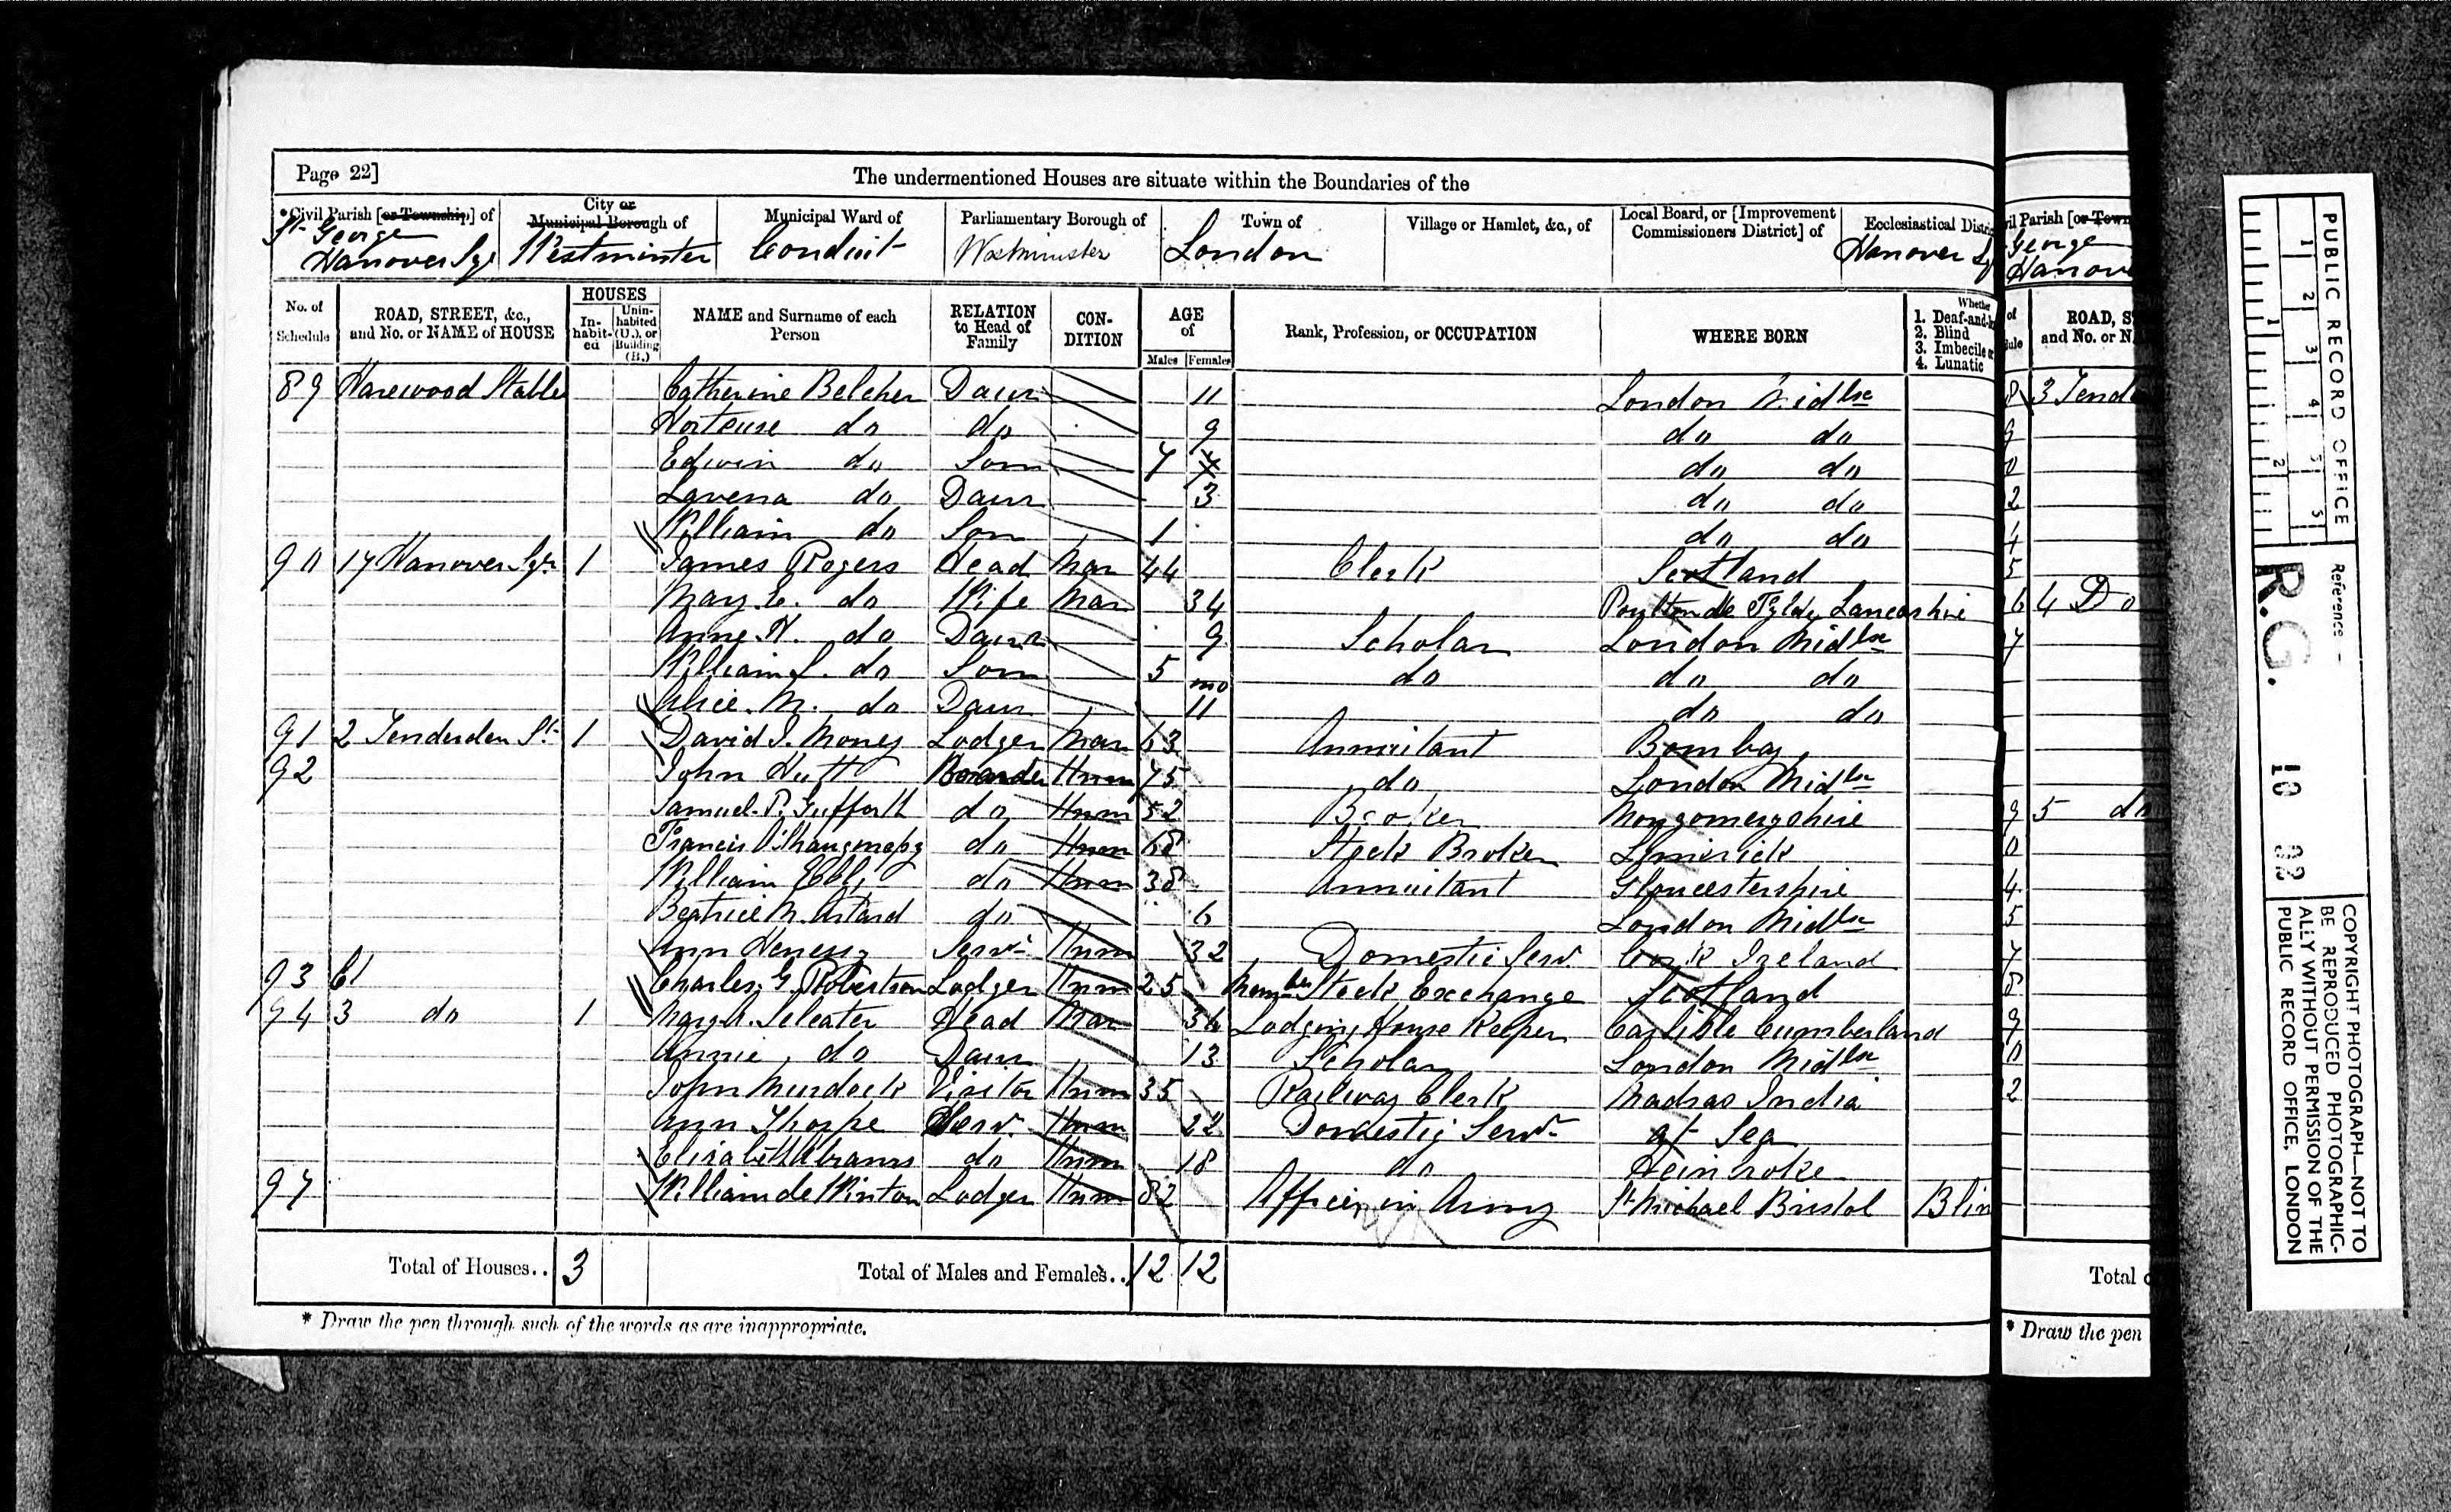 Page 22]
The undermentioned Houses are situate within the Boundaries of the
*Civil Parish [or Township] of
City or Municipal Borough of
Municipal Ward of
Parliamentary Borough of
Town of
Village or Hamlet, &c., of
Local Board, or [Improvement Commissioners District] of
Ecclesiastical Distri
St George Hanover Sqr
Westminster
Conduit
Westminster
London
Hanover Sq
No. of Schedule
ROAD, STREET, &c., and No. or NAME of HOUSE
HOUSES
In-habit-ed
Unin-habited (U.), or Building (B.)
NAME and Surname of each Person
RELATION to Head of Family
CON-DITION
AGE of
Males
Females
Rank, Profession, or OCCUPATION
WHERE BORN
Whether
1. Deaf-and-
2. Blind
3. Imbecile or
4. Lunatic
89 Harewood Stables Catherine Belcher Daur 11 London Middsx
Hortense do do 9 do do
Edwin do Son 7 do do
Lavena do Daur 3 do do
William do Son 1 do do
90 17 Hanover Sqr 1 James Rogers Head Mar 44 Clerk Scotland
Mary E. do Wife Mar 34 Poulton de Fylde, Lancashire
Anne H. do Daur 9 Scholar London Middsx
William S. do Son 5 do do do
Alice M. do Daur 11 mo do do
91 2 Tenderden St 1 David I. Money Lodger Mar 63 Annuitant Bombay
92 John Hutt Boarder Unm 75 do London Middsx
Samuel P. do Unm 52 Broker Montgomeryshire
Francis do Unm 68 Stock Broker Limerick
William do Unm 38 Annuitant Gloucestershire
Beatrice M. do 6 London Middsx
Ann Henessy Servt Unm 32 Domestic Serv. Cork Ireland
93 Charles G. Robertson Lodger Unm 25 Member Stock Exchange Scotland
94 3 do 1 Mary A. Seleater Head Mar 36 Lodging House Keeper Carlisle Cumberland
Annie do Daur 13 Scholar London Middsx
John Murdock Visitor Unm 35 Railway Clerk Madras India
Ann Thorpe Serv. Unm 22 Domestic Servt at Sea
Elizabeth Abrams do Unm 18 do Pembroke
97 William de Winton Lodger Unm 82 Officer in Army St Michael Bristol Blin
Total of Houses.. 3
Total of Males and Females.. 12 12
* Draw the pen through such of the words as are inappropriate.
vil Parish [or Town
George
Hanov
of
ule
ROAD, S
and No. or N
3 Tend
4 Do
5 do
Total o
* Draw the pen
PUBLIC RECORD OFFICE
1 2 3 4 5
1 2
Reference -
R.G. 10 92
COPYRIGHT PHOTOGRAPH—NOT TO BE REPRODUCED PHOTOGRAPHIC-ALLY WITHOUT PERMISSION OF THE PUBLIC RECORD OFFICE, LONDON